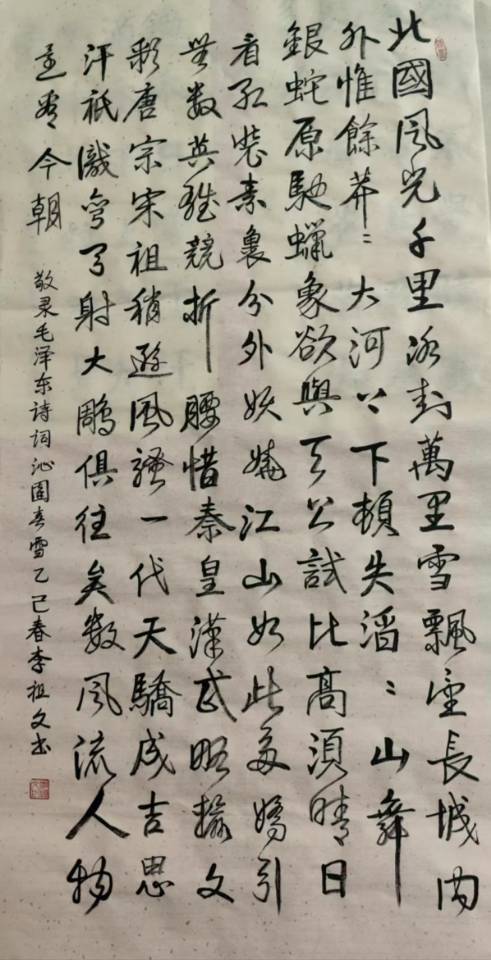 北國风光千里冰封萬里雪飄望長城内
外惟餘莽〻大河上下頓失滔〻山舞
銀蛇原馳蠟象欲與天公試比高須晴日
看红装素裹分外妖娆江山如此多嬌引
無数英雄競折腰惜秦皇漢武略输文
彩唐宗宋祖稍遜风骚一代天驕成吉思
汗祇識弯弓射大雕俱往矣数风流人物
还看今朝
敬录毛泽东诗词沁園春雪乙巳春李祖文书